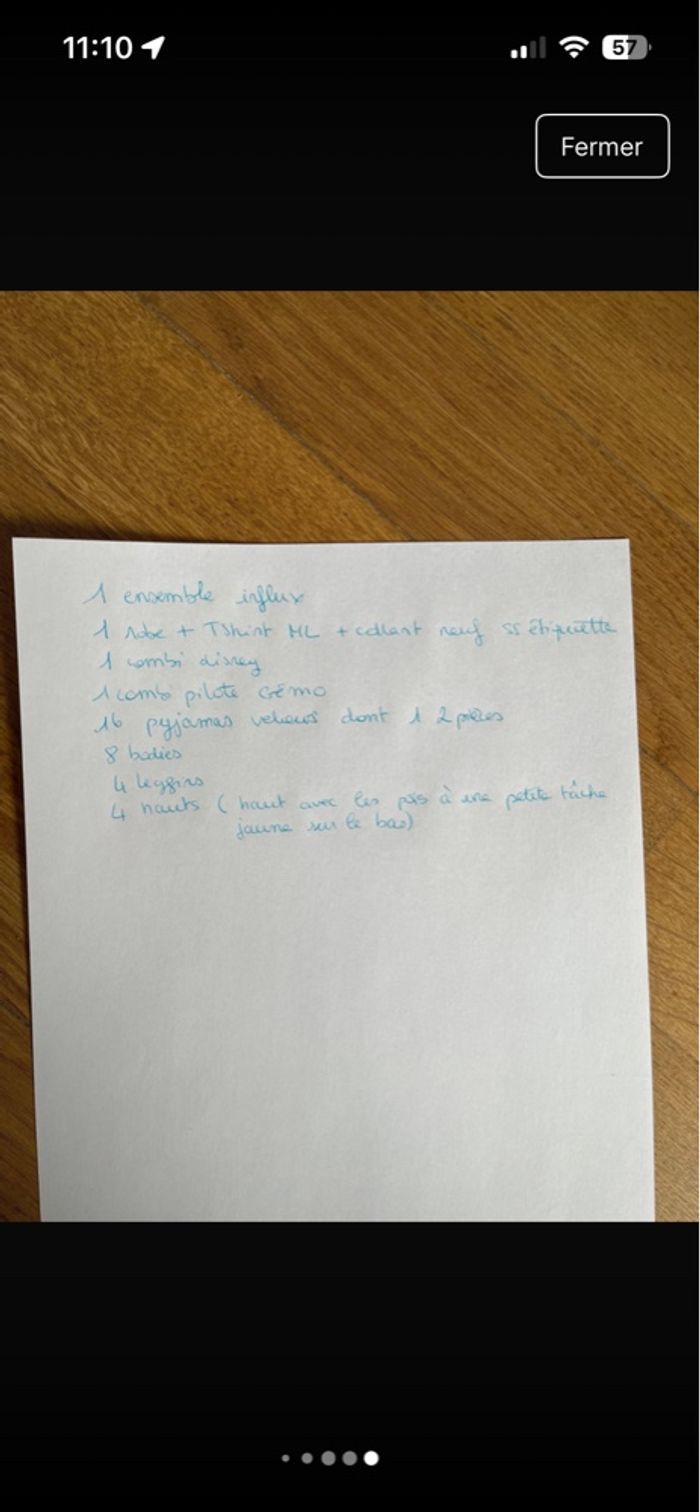 11:10
57
Fermer
1 ensemble influx
1 robe + TShirt ML + collant neuf ss étiquette
1 combi disney
1 combi pilote Gémo
16 pyjamas velours dont 1 2 pièces
8 bodies
4 leggins
4 hauts ( haut avec les pois à une petite tâche
jaune sur le bas)